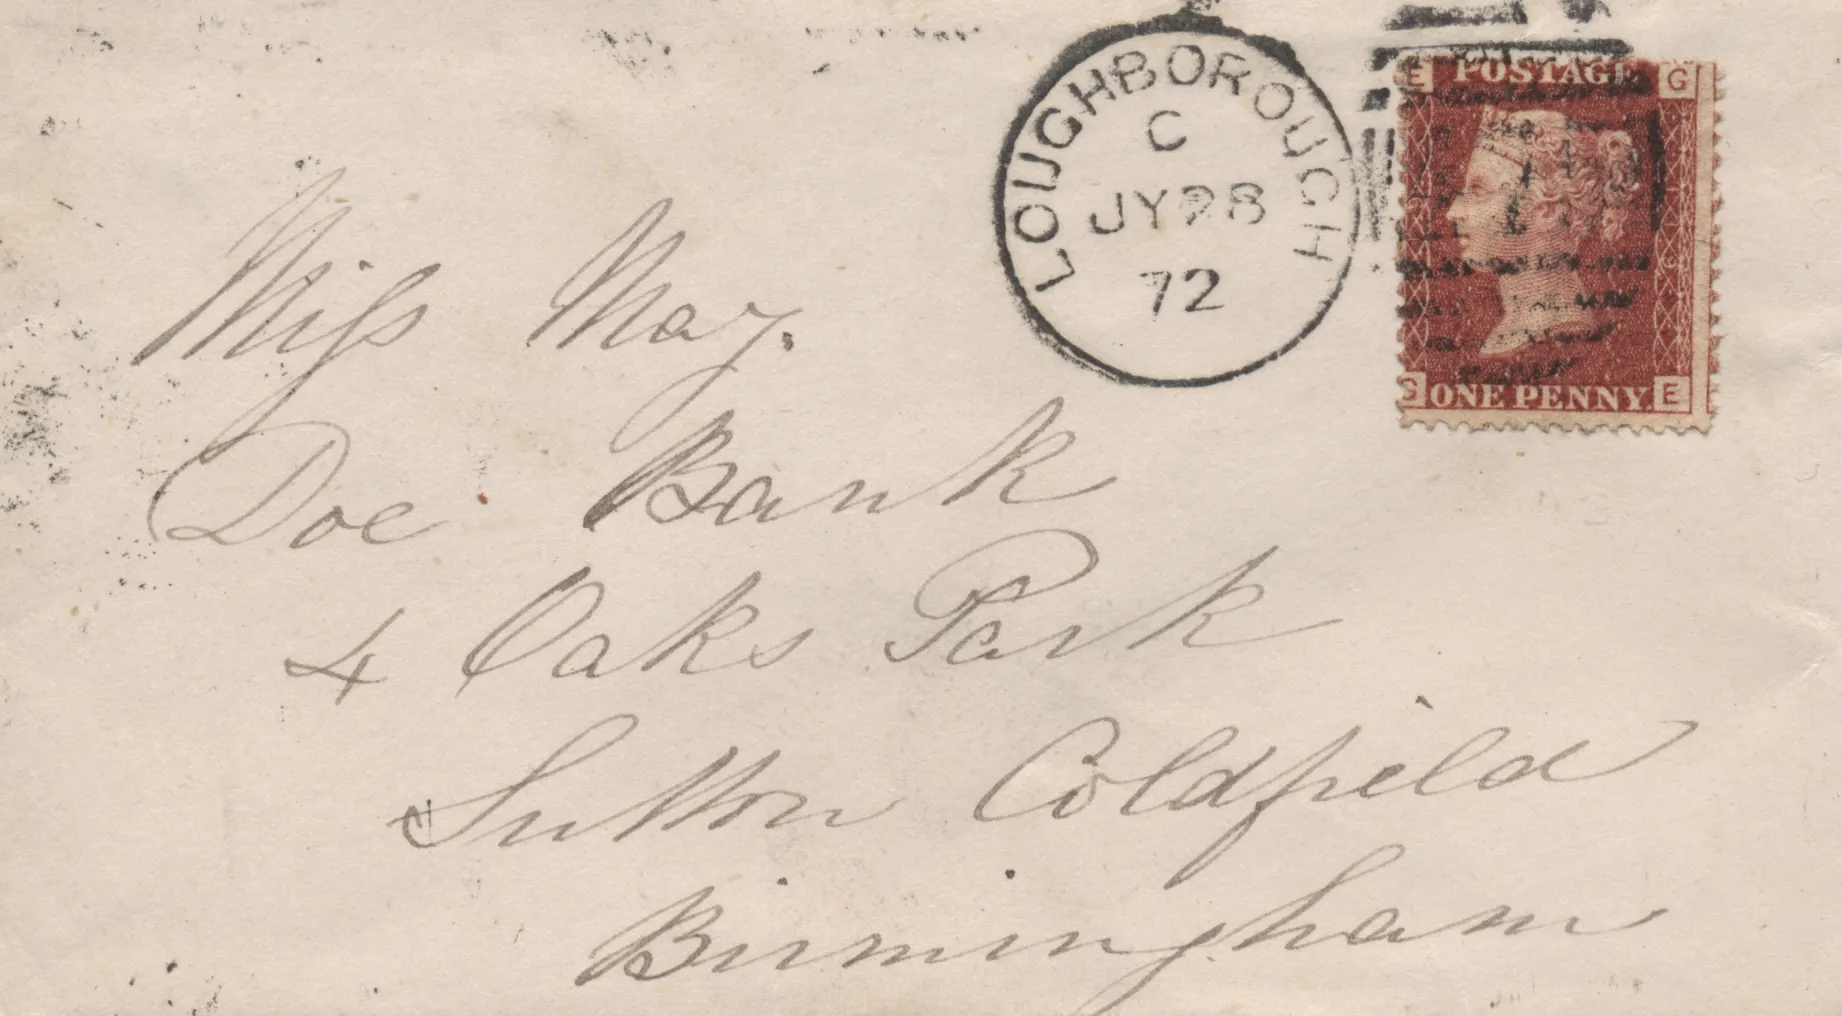 LOUGHBOROUGH
C
JY 28
72
E POSTAGE G
G ONE PENNY E
Miss May.
Doe Bank
4 Oaks Park
Sutton Coldfield
Birmingham